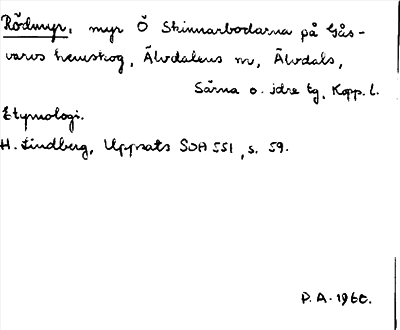 Rödmyr, myr Ö Skinnarbodarna på Gås-
varvs hemskog, Älvdalens sn, Älvdals,
Särna o. Idre tg, Kopp. l.
Etymologi.
H. Lindberg, Uppsats SOA 551, s. 59.
P.A. 1960.